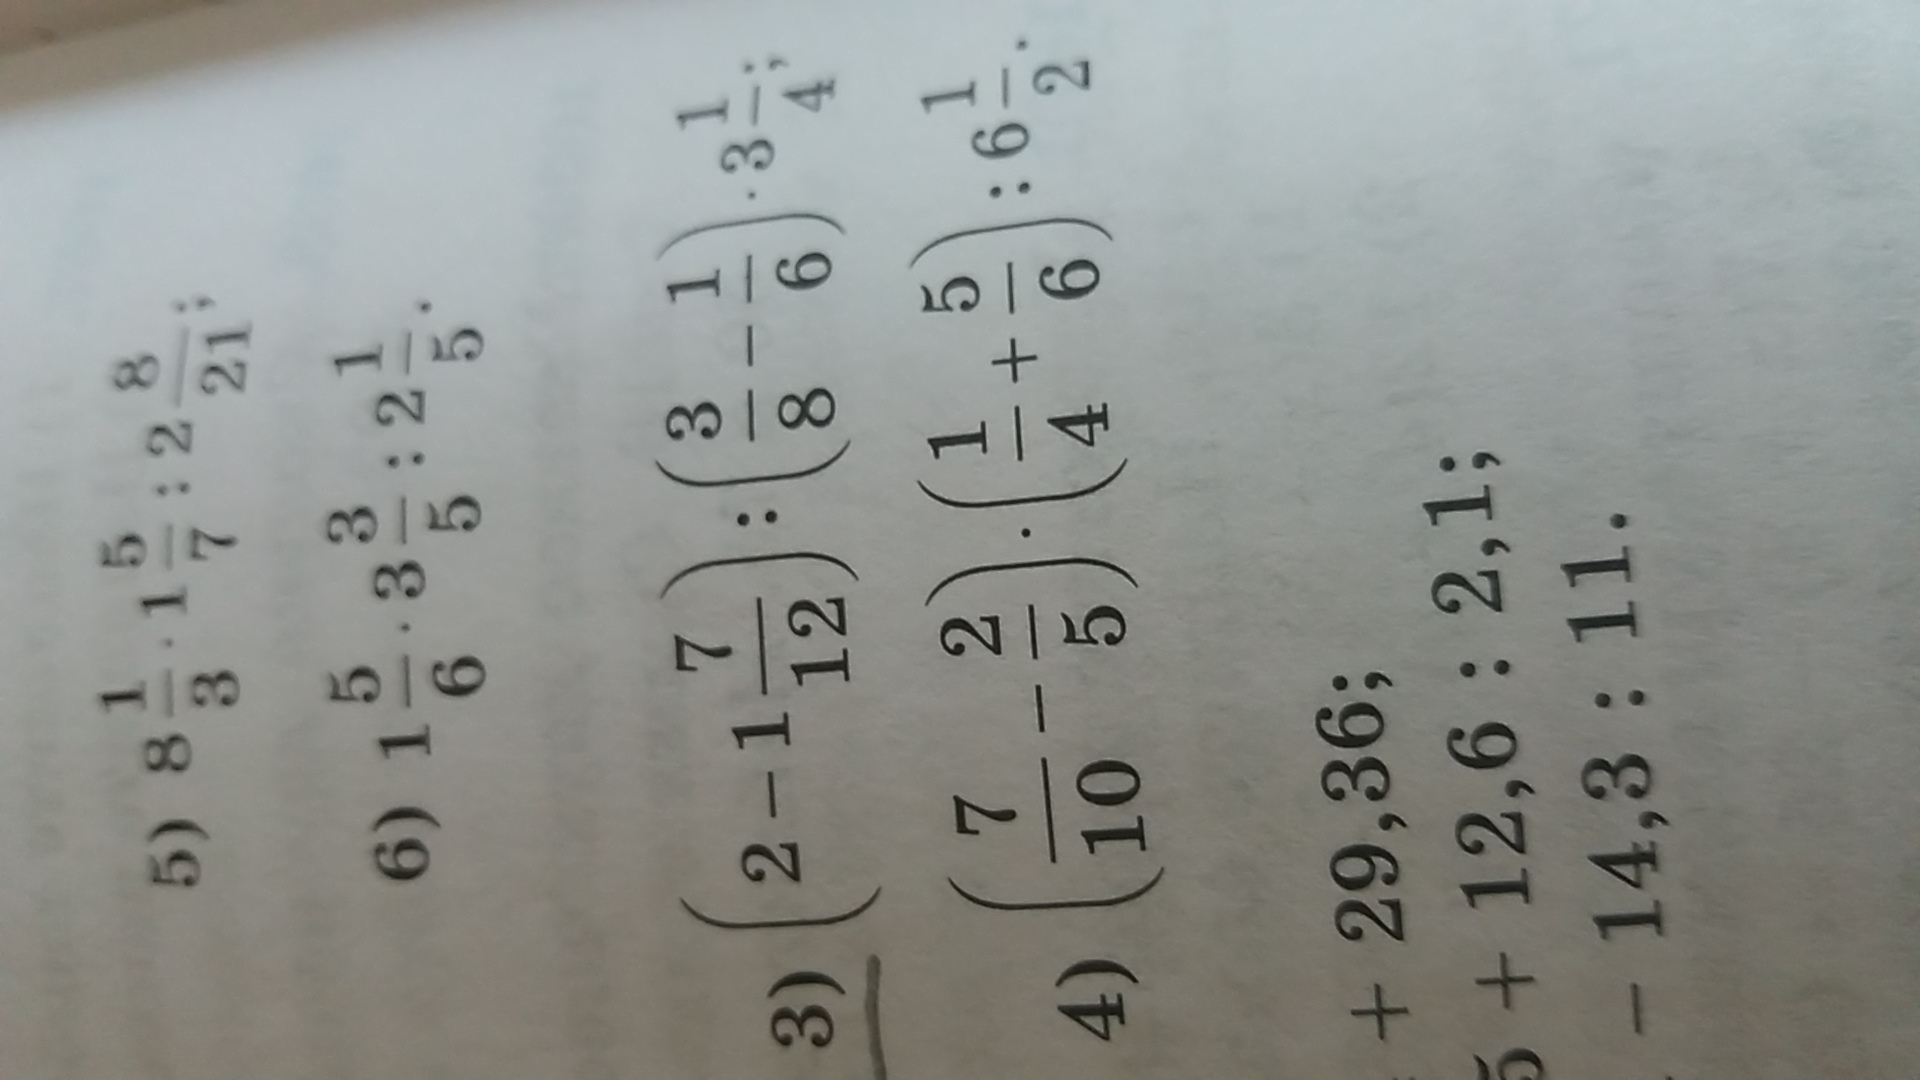 5) 8 1/3 · 1 5/7 : 2 8/21;
6) 1 5/6 · 3 3/5 : 2 1/5.
3) (2 − 1 7/12) : (3/8 − 1/6) · 3 1/4;
4) (7/10 − 2/5) · (1/4 + 5/6) : 6 1/2.
+ 29,36;
5 + 12,6 : 2,1;
− 14,3 : 11.